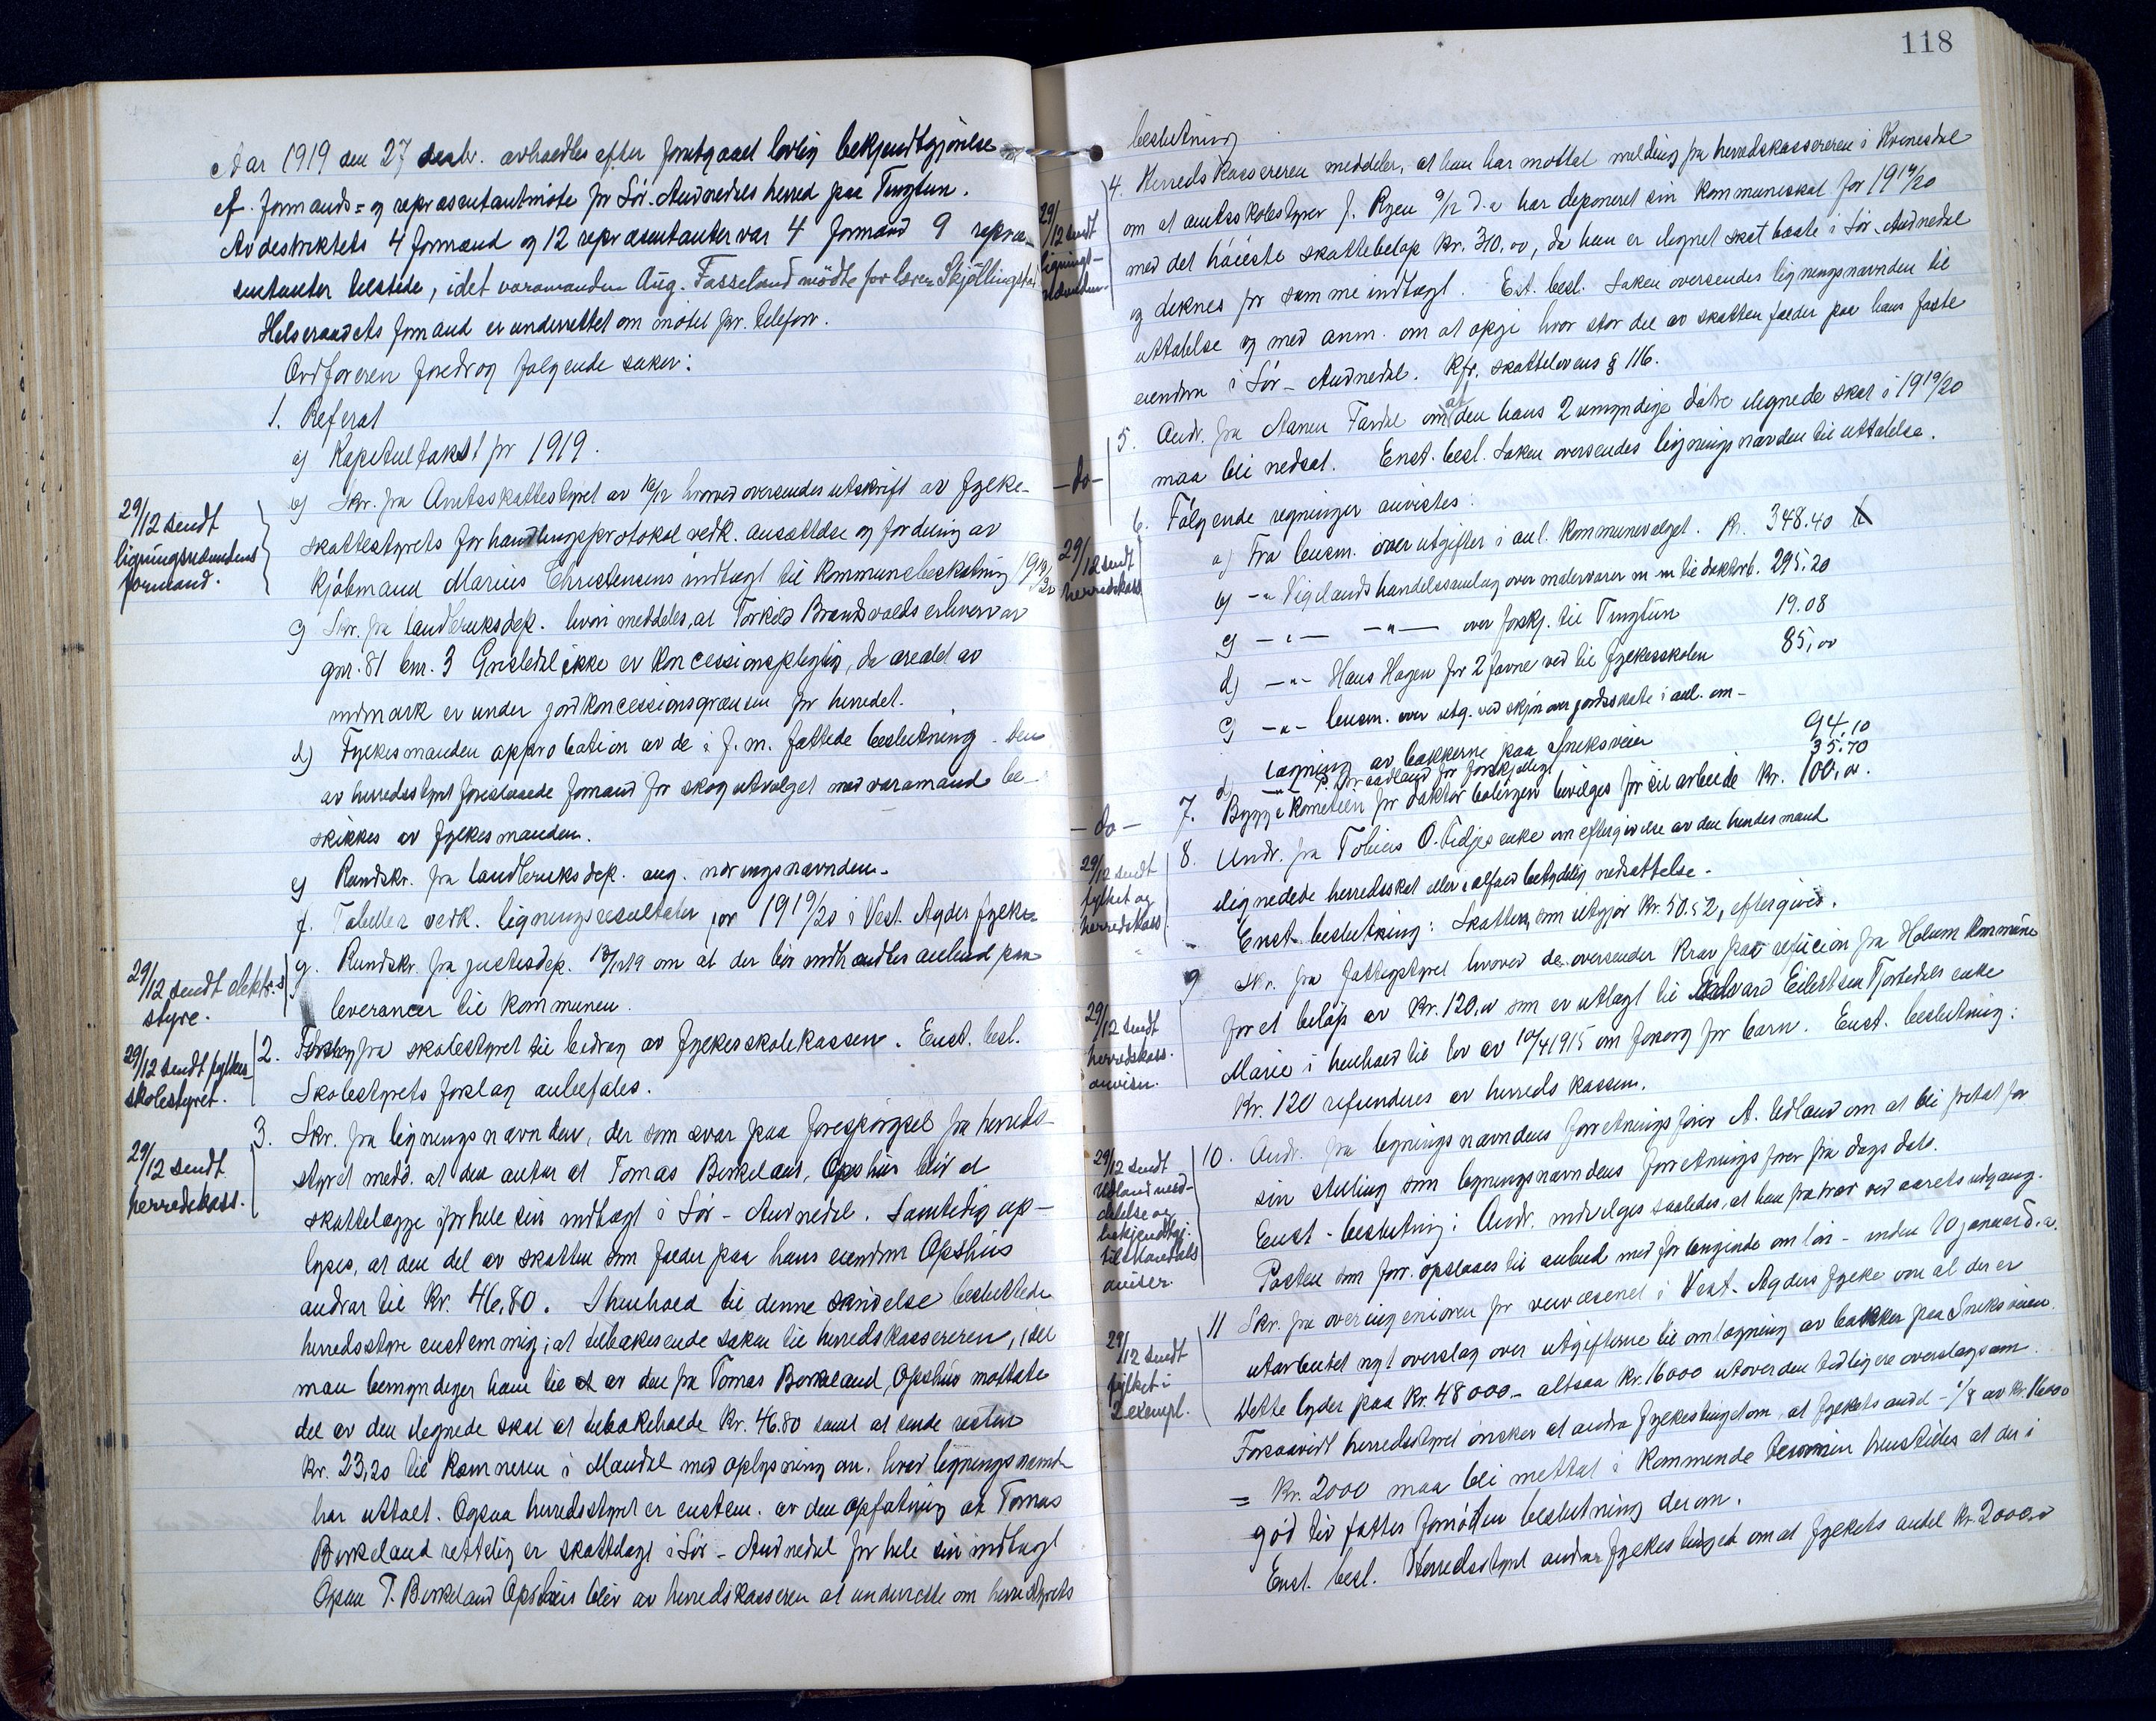 Aar 1919 den 27 desbr. avholdtes efter forutgaaet lovlig bekjendtgjörelse
et formands= og repræsentantmöte for Sör-Audnedals herred paa Tingtun.
Av destriktets 4 formænd og 12 repræsentanter var 4 formænd 9 repræ-
sentanter tilstede, idet varamanden Aug. Fasseland mödte for Sören Skjöllingstad
Helseraadets formand er underrettet om mötet pr. telefon.
Ordföreren foredrog fölgende saker:
1. Referat
a) Kapitultakst for 1919.
29/12 sendt
ligningsnævndens
formand.
b) Skr. fra Amtsskattestyret av 16/12 hvorved oversendes utskrift av fylke-
skattestyrets forhandlingsprotokol vedk. ansættelse og fordeling av
kjöbmand Marius Christensens indtægt til kommunebeskatning 1919/20
c) Skr. fra landbruksdep. hvori meddeles, at Torkild Brandsvolds erhverv av
gnr. 81 bnr. 3 Grisledal ikke er koncessionspligtig, da arealet av
indmark er under jordkoncessionsgrænsen for herredet.
d) Fylkesmanden approbation av de i f. m. fattede beslutning - den
av herredsstyret foreslaaede formand for skogutvalget med varamand be-
skikkes av fylkesmanden.
e) Rundskr. fra landbruksdep. ang. noringsnævnden.
f. Tabeller vedk. ligningsresultater for 1919/20 i Vest-Agder fylke
29/12 sendt elektr.s
styre.
g. Rundskr. fra justisdep. 13/12 19 om at der bör indhandles anbud paa
leverancer til kommunen.
29/12 sendt fylkes-
skolestyret.
2. Forslag fra skolestyret til bidrag av fylkesskolekassen. Enst. besl.
Skolestyrets forslag anbefales.
29/12 sendt
herredskass.
3. Skr. fra ligningsnævnden, der som svar paa forespörgsel fra herreds-
styret medd. at den antar at Tomas Birkeland, Opshus blir at
skattelægge for hele sin indtægt i Sör-Audnedal. Samtidig op-
lyses, at den del av skatten som falder paa hans eiendom Opshus
andrar til Kr. 46,80. I henhold til denne skrivelse besluttede
herredsstyre enstemmig, at tilbakesende saken til herredskassereren, idet
man bemyndiger ham til at av den fra Tomas Birkeland, Opshus mottate
del av den ilegnede skat at tilbakeholde Kr. 46.80 samt at sende resten
Kr. 23,20 til Kæmneren i Mandal med oplysning om, hvad ligningsnævnd
har uttalt. Ogsaa herredsstyret er enstem. av den opfatning at Tomas
Birkeland rettelig er skattelagt i Sör-Audnedal for hele sin indtægt
Ogsaa T. Birkeland Opshus blir av herredskasseren at underrette om herredstyrets
118
beslutning
29/12 sendt
lignings-
nævnden.
4. Herredskassereren meddeler, at han har mottat melding fra herredskassereren i Kvinesdal
om at amtsskolestyrer J. Ryen 9/12 d.a har deponeret sin kommuneskat for 1919/20
med det höieste skattebelöp kr. 310,00, da han er ilegnet skat baate i Sör-Audnedal
og deknes for samme indtægt. Ent. besl. Saken oversendes ligningsnævnden til
uttalelse og med anm. om at opgi hvor stor del av skatten falder paa hans faste
eiendom i Sör-Audnedal. Kfr. skattelovens § 116.
- do -
5. Andr. fra Aanen Tardal om at den hans 2 umyndige dötre ilegnede skat i 1919/20
maa bli nedsat. Enst. besl. Saken oversendes ligningsnævnden til uttalelse.
29/12 sendt
herredskass
6. Fölgende regninger anvistes:
a) Fra lensm. over utgifter i anl. kommunevalget. Kr. 348.40
b) -"- Vigelands handelssamlag over malervarer m m til doktorb. 295.20
c) -"- -"- over forskj. til Tingtun 19.08
d) -"- Hans Hagen for 2 favne ved til fylkesskolen 85,00
e) -"- lensm. over utg. ved skjön over jordsskade i anl. om-
lægning av bakkerne paa Sneksveien 94.10
d) -"- P. Vraadland for forskjelligt 35.70
- do -
7. Byggekomiteen for doktorboligen bevilges for sit arbeide kr. 100,00.
29/12 sendt
fylket og
herredskass
8. Andr. fra Tobias O. Fidjes enke om eftergivelse av den hendes mand
ilignedede herredsskat eller i alfald betydelig nedsættelse.
Enst. beslutning: Skatten, som utgjör Kr. 50.52, eftergives.
29/12 sendt
herredskass.
anvisn.
9 Skr. fra fattigstyret hvorved de oversender krav paa refusion fra Holum kommune
for et belöp av Kr. 120,00 som er utlagt til Edvard Eilertsen Tjorledals enke
Marie i henhold til lov av 10/4 1915 om forsorg for barn. Enst. beslutning:
Kr. 120 refunderes av herredskassen.
29/12 sendt
Udland med-
delelse og
bekjendtgj.
til Mandals
aviser.
10. Andr. fra ligningsnævndens forretningsförer A. Udland om at bli fritat for
sin stilling som ligningsnævndens forretningsförer fra dags dato.
Enst. beslutning: Andr. indvilges saaledes, at han fratrær ved aarets utgang.
Posten som forr. opslaaes til anbud med forlangende om lön - inden 20 januar d.a.
29/12 sendt
fylket i
2 exempl.
11 Skr. fra overingeniören for veivæsenet i Vest-Agders fylke om at der er
utarbeidet nyt overslag over utgifterne til omlægning av bakker paa Sneksveien
Dette lyder paa kr. 48000,- altsaa kr. 16000 utover den tidligere overslagssum.
Forsaavidt herredsstyret önsker at andra fylkestinget om, at fylkets andel - 1/8 av kr. 16000
= Kr. 2000 maa bli mottat i kommende termin henstilles at der i
god tid fattes fornöden beslutning derom.
Enst. besl. Herredsstyret andrar fylkestinget om at fylkets andel kr. 2000,00